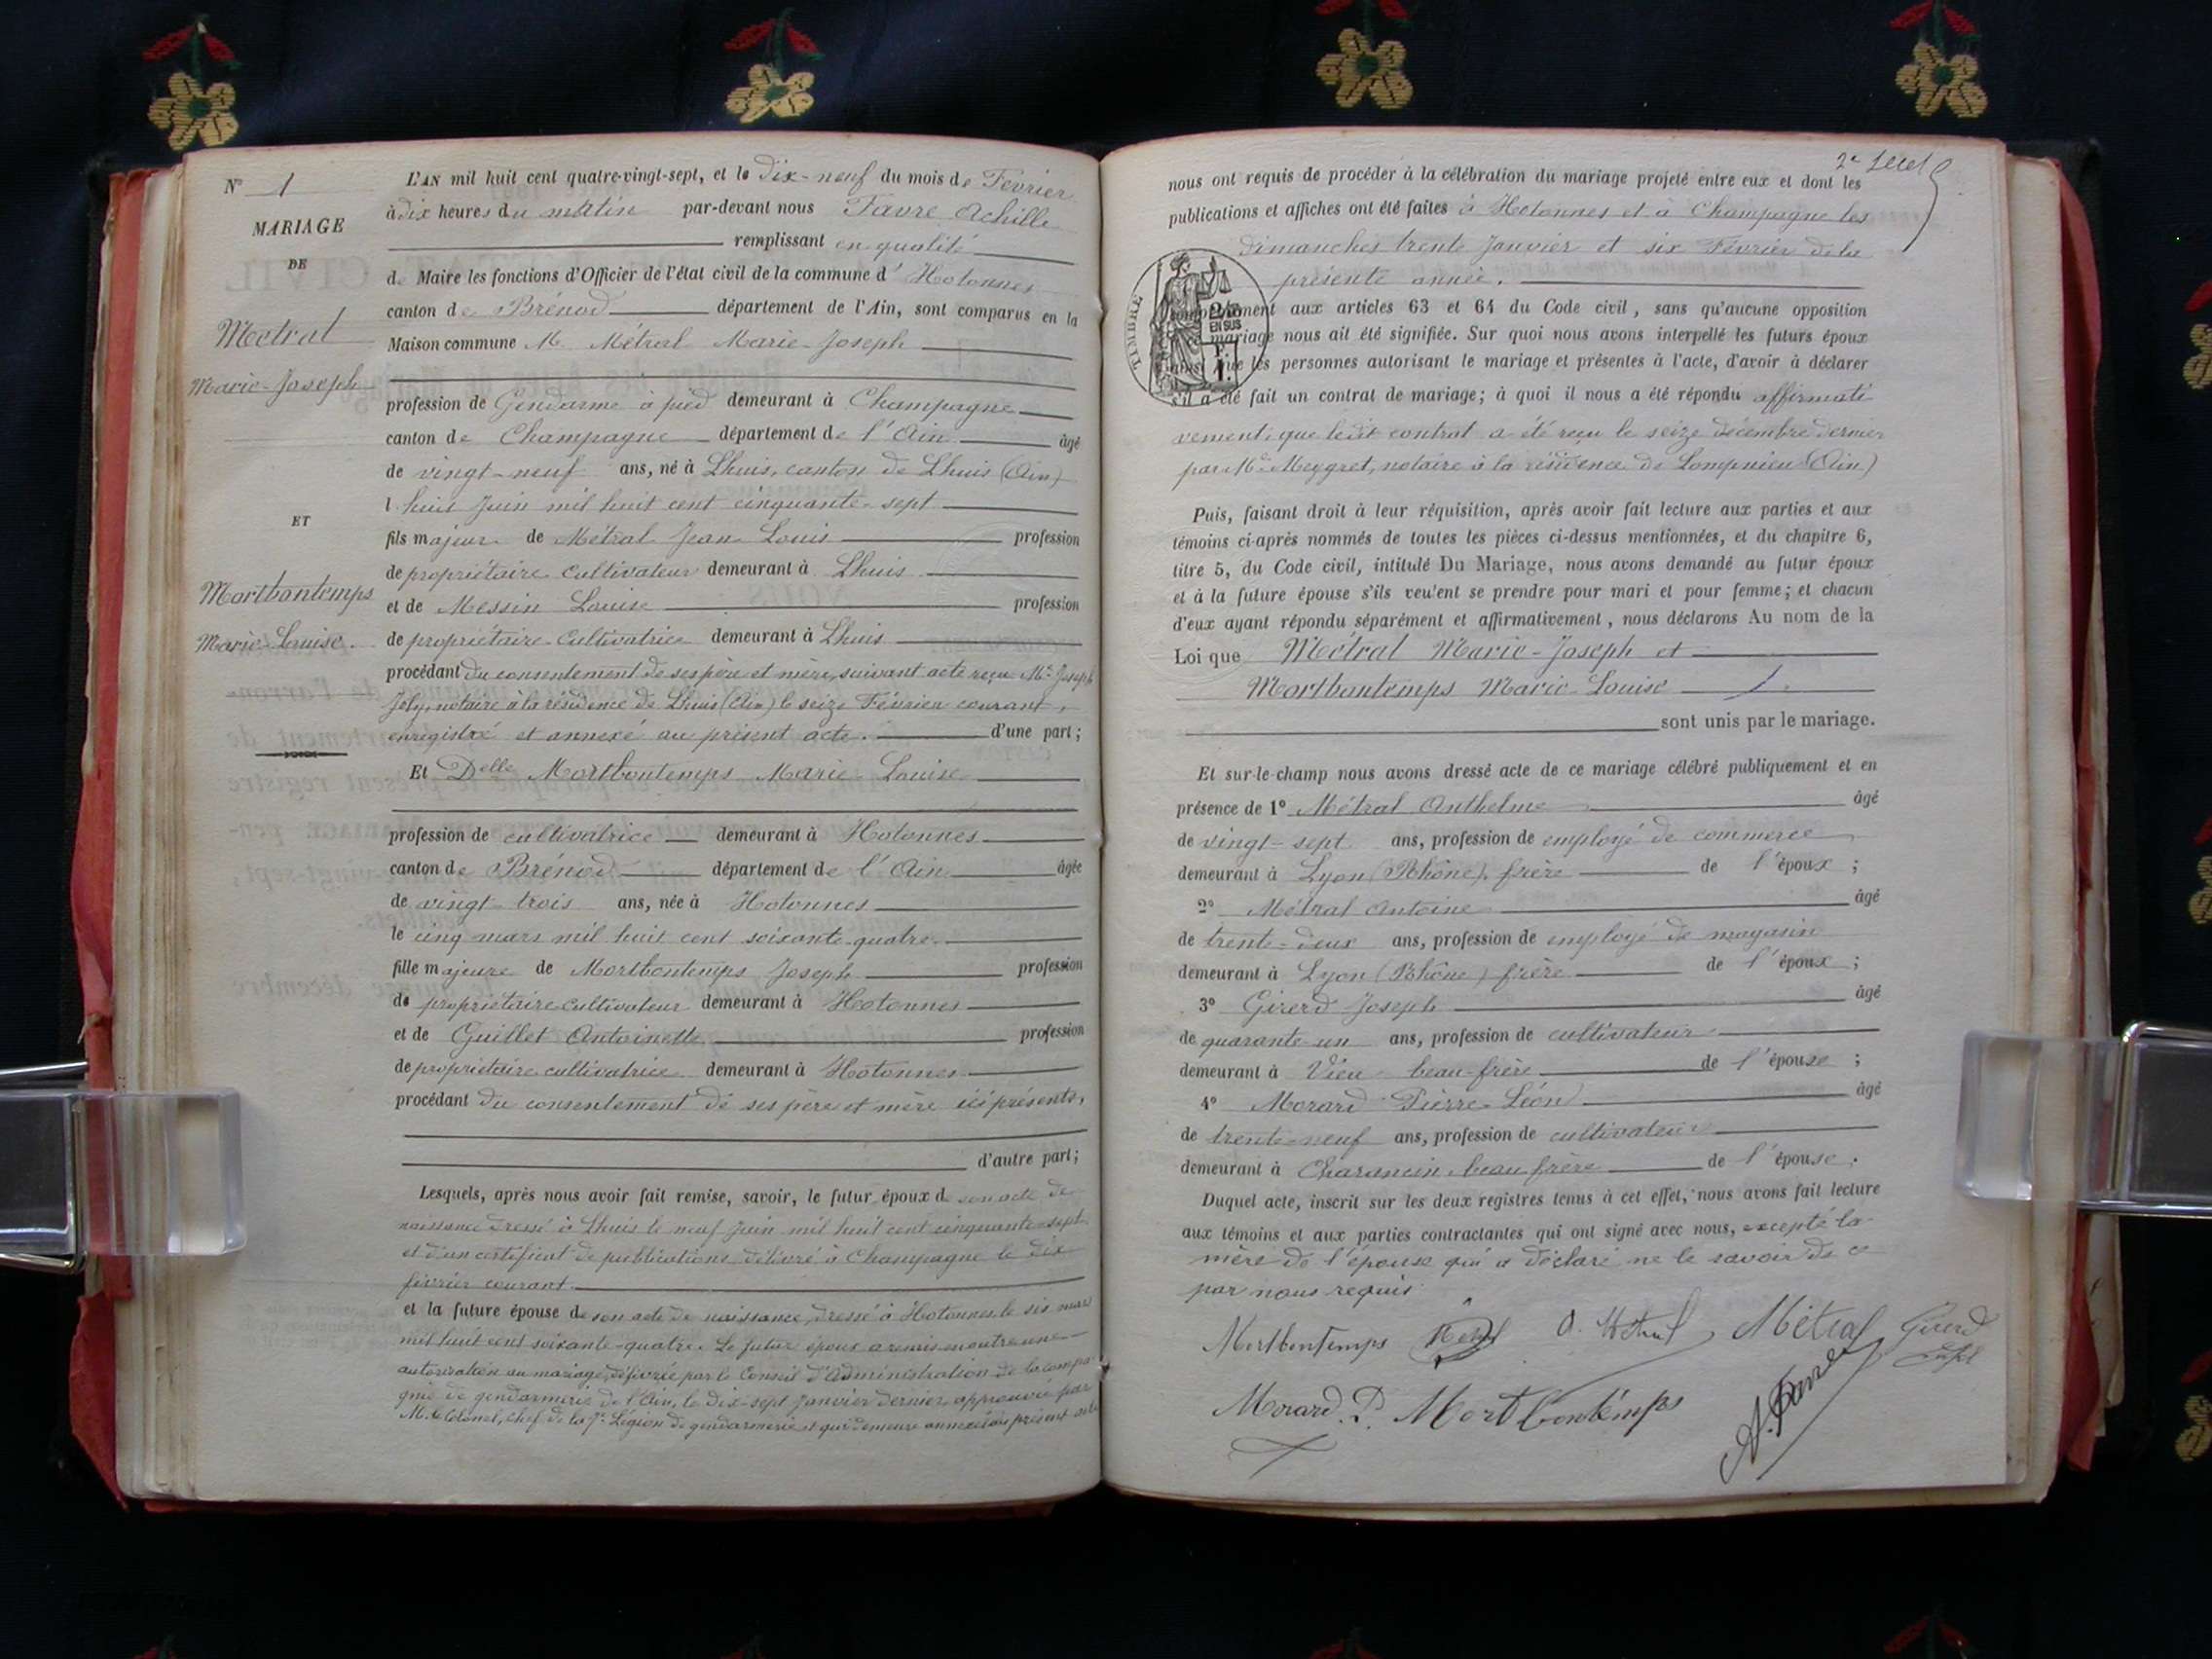 N° 1
MARIAGE
DE
Métral
Marie-Joseph
ET
Mortbontemps
Marie-Louise.
L'AN mil huit cent quatre-vingt-sept, et le dix-neuf du mois de Février
à dix heures du matin par-devant nous Favre Achille
remplissant en qualité
de Maire les fonctions d'Officier de l'état civil de la commune d'Hotonnes
canton de Brénod département de l'Ain, sont comparus en la
Maison commune M. Métral Marie-Joseph
profession de Gendarme à pied demeurant à Champagne
canton de Champagne département de l'Ain âgé
de vingt-neuf ans, né à Lhuis, canton de Lhuis (Ain)
l huit Juin mil huit cent cinquante-sept
fils majeur de Métral Jean Louis profession
de propriétaire cultivateur demeurant à Lhuis
et de Messin Louise profession
de propriétaire-Cultivatrice demeurant à Lhuis
procédant du consentement de ses père et mère, suivant acte reçu Me Joseph
Joly, notaire à la résidence de Lhuis (Ain) le seize Février courant,
enregistré et annexé au présent acte. d'une part;
Et Delle Mortbontemps Marie Louise
profession de cultivatrice demeurant à Hotonnes
canton de Brénod département de l'Ain âgée
de vingt-trois ans, née à Hotonnes
le cinq mars mil huit cent soixante-quatre
fille majeure de Mortbontemps Joseph profession
de propriétaire cultivateur demeurant à Hotonnes
et de Guillet Antoinette profession
de propriétaire cultivatrice demeurant à Hotonnes
procédant du consentement de ses père et mère ici présents,
d'autre part;
Lesquels, après nous avoir fait remise, savoir, le futur époux de son acte de
naissance dressé à Lhuis le neuf Juin mil huit cent cinquante-sept
et d'un certificat de publications délivré à Champagne le dix
février courant.
et la future épouse de son acte de naissance, dressé à Hotonnes le six mars
mil huit cent soixante-quatre. Le futur époux a remis en outre une
autorisation au mariage, délivrée par le Conseil d'Administration de la compa-
gnie de gendarmerie de l'Ain, le dix-sept Janvier dernier approuvée par
M. le Colonel, chef de la 7e Légion de gendarmerie et qui demeure annexée au présent acte
nous ont requis de procéder à la célébration du mariage projeté entre eux et dont les
publications et affiches ont été faites à Hotonnes et à Champagne les
dimanches trente Janvier et six Février de la
présente année.
TIMBRE
2/10
EN SUS
conformément aux articles 63 et 64 du Code civil, sans qu'aucune opposition
mariage nous ait été signifiée. Sur quoi nous avons interpellé les futurs époux
ainsi que les personnes autorisant le mariage et présentes à l'acte, d'avoir à déclarer
s'il a été fait un contrat de mariage; à quoi il nous a été répondu affirmati-
vement, que ledit contrat a été reçu le seize décembre dernier
par Me Meygret, notaire à la résidence de Lompnieu (Ain)
Puis, faisant droit à leur réquisition, après avoir fait lecture aux parties et aux
témoins ci-après nommés de toutes les pièces ci-dessus mentionnées, et du chapitre 6,
titre 5, du Code civil, intitulé Du Mariage, nous avons demandé au futur époux
et à la future épouse s'ils veulent se prendre pour mari et pour femme; et chacun
d'eux ayant répondu séparément et affirmativement, nous déclarons Au nom de la
Loi que Métral Marie-Joseph et
Mortbontemps Marie Louise
sont unis par le mariage.
Et sur-le-champ nous avons dressé acte de ce mariage célébré publiquement et en
présence de 1° Métral Anthelme âgé
de vingt-sept ans, profession de employé de commerce
demeurant à Lyon (Rhône), frère de l'époux;
2° Métral Antoine âgé
de trente-deux ans, profession de employé de magasin
demeurant à Lyon (Rhône) frère de l'époux;
3° Girerd Joseph âgé
de quarante-un ans, profession de cultivateur
demeurant à Vieu beau-frère de l'épouse;
4° Morard Pierre-Léon âgé
de trente-neuf ans, profession de cultivateur
demeurant à Charancin, beau frère de l'épouse.
Duquel acte, inscrit sur les deux registres tenus à cet effet, nous avons fait lecture
aux témoins et aux parties contractantes qui ont signé avec nous, excepté la
mère de l'épouse qui a déclaré ne le savoir de ce
par nous requis
Mortbontemps Métral A. Métral Métral Girerd
Joseph
Morard. P. Mortbontemps A. Favre